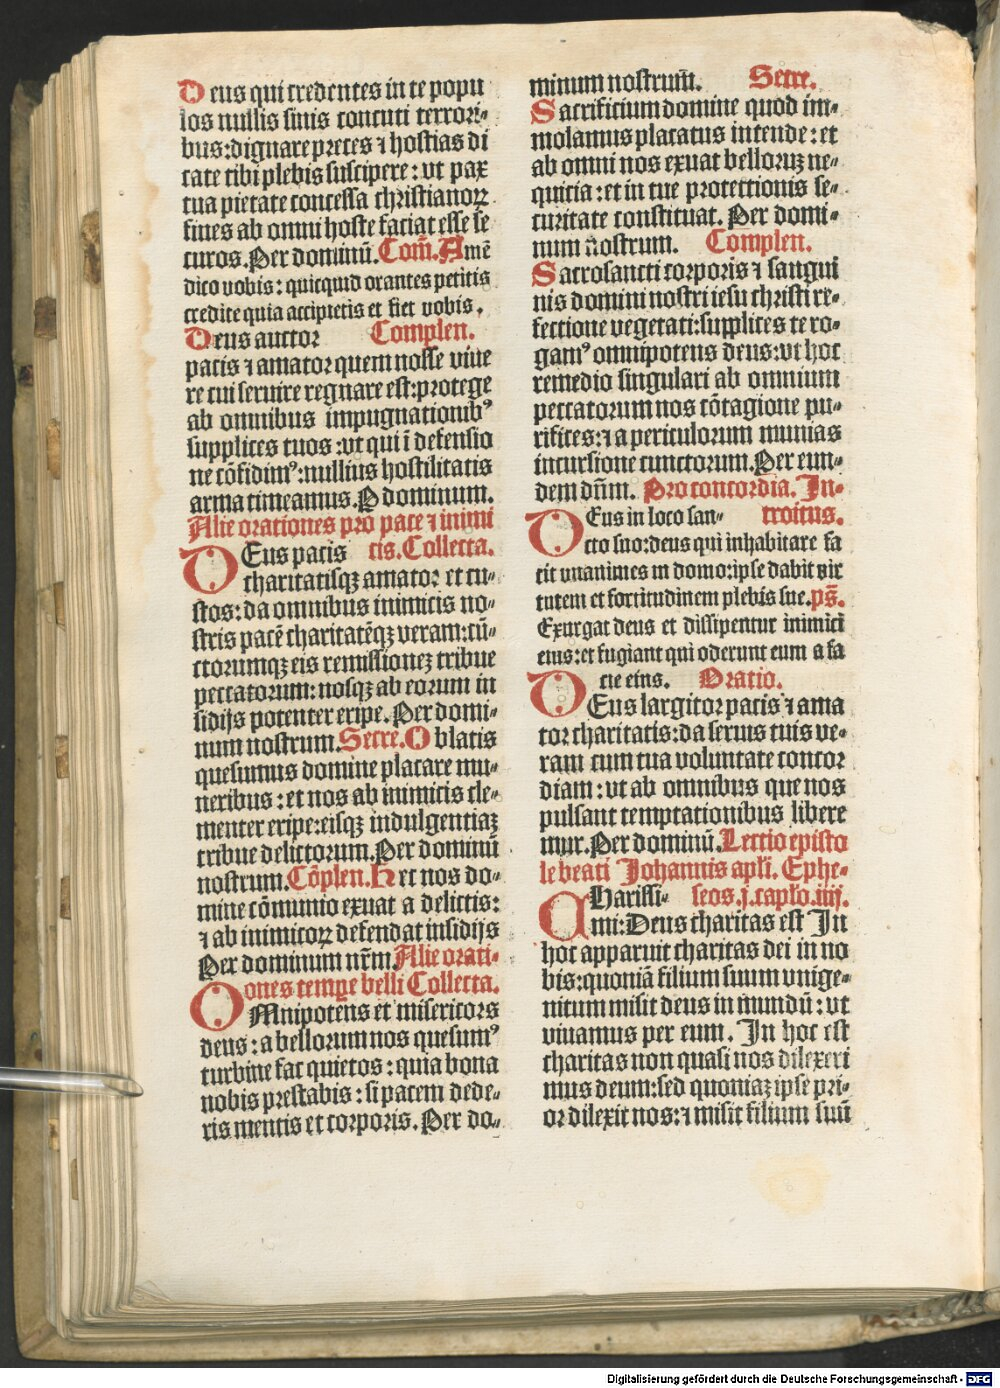 Deus qui credentes in te popu
los nullis sinis concuti terrori-
bus: dignare preces ⁊ hostias di
cate tibi plebis suscipere: vt pax
tua pietate concessa christianoꝝ
fines ab omni hoste faciat esse se
curos. Per dominū. Com̄. Amē
dico vobis: quicquid orantes petitis
credite quia accipietis et fiet vobis.
Deus auctor Complen.
pacis ⁊ amator quem nosse viue
re cui seruire regnare est: protege
ab omnibus impugnationibꝰ
supplices tuos: vt qui ī defensio
ne cōfidimꝰ: nullius hostilitatis
arma timeamus. P dominum.
Alie orationes pro pace ⁊ inimi
DEus pacis cis. Collecta.
charitatisqꝫ amator et cu-
stos: da omnibus inimicis no-
stris pacē charitatēqꝫ veram: cū-
ctorumqꝫ eis remissioneꝫ tribue
peccatorum: nosqꝫ ab eorum in
sidijs potenter eripe. Per domi-
num nostrum. Secre. Oblatis
quesumus domine placare mu-
neribus: et nos ab inimicis cle-
menter eripe: eisqꝫ indulgentiaꝫ
tribue delictorum. Per dominū
nostrum. Cōplen. Het nos do-
mine cōmunio exuat a delictis:
⁊ ab inimicoꝝ defendat insidijs
Per dominum nr̄m. Alie orati-
ones tempe belli Collecta.
OMnipotens et misericors
deus: a bellorum nos quesumꝰ
turbine fac quietos: quia bona
nobis prestabis: si pacem dede-
ris mentis et corporis. Per do-
minum nostrum̄. Secre.
Sacrificium domine quod im-
molamus placatus intende: et
ab omni nos exuat belloruꝫ ne-
quicia: et in tue protectionis se-
curitate constituat. Per domi-
num nostrum. Complen.
Sacrosancti corporis ⁊ sangui
nis domini nostri iesu christi re-
fectione vegetati: supplices te ro-
gamꝰ omnipotens deus: vt hoc
remedio singulari ab omnium
peccatorum nos cōtagione pu-
rifices: ⁊ a periculorum munias
incursione cunctorum. Per eun-
dem dn̄m. Pro concordia. In-
DEus in loco san- troitus.
cto suo: deus qui inhabitare fa
cit vnanimes in domo: ipse dabit vir
tutem et fortitudinem plebis sue. ps̄.
Exurgat deus et dissipentur inimici
eius: et fugiant qui oderunt eum a fa
cie eius. Oratio.
DEus largitor pacis ⁊ ama
tor charitatis: da seruis tuis ve-
ram cum tua voluntate concor
diam: vt ab omnibus que nos
pulsant temptationibus libere
mur. Per dominū. Lectio episto
le beati Johannis apl̄i. Ephe-
CHarissi- seos. j. capl̄o. iiij.
mi: Deus charitas est In
hoc apparuit charitas dei in no
bis: quoniā filium suum vnige-
nitum misit deus in mundū: vt
viuamus per eum. In hoc est
charitas non quasi nos dilexeri
mus deum: sed quoniaꝫ ipse pri-
or dilexit nos: ⁊ misit filium suū
Digitalisierung gefördert durch die Deutsche Forschungsgemeinschaft - DFG